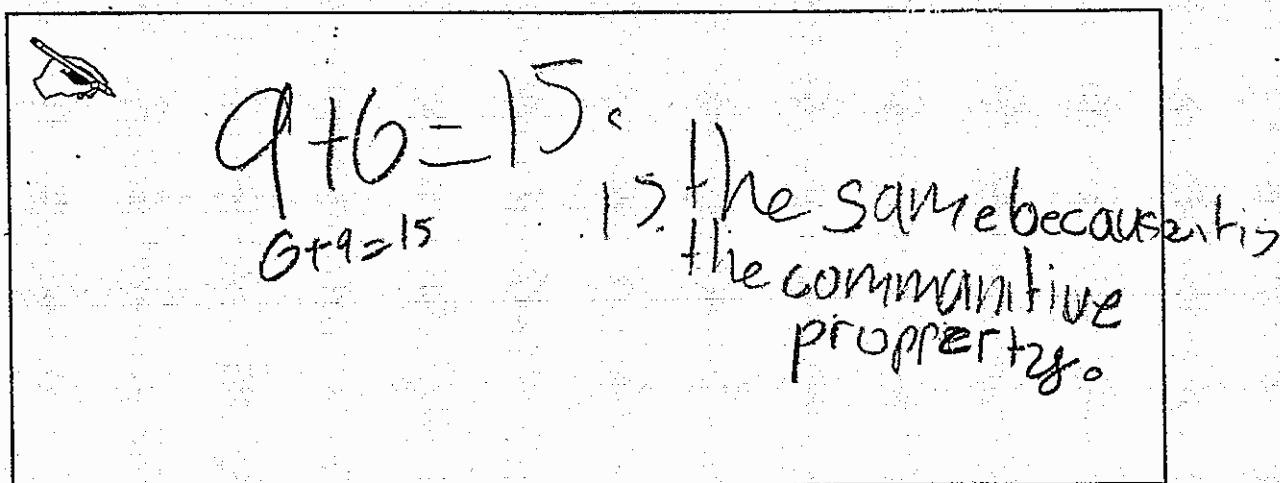 9+6=15.
6+9=15
is the same because it is
the commanitive
propperty.